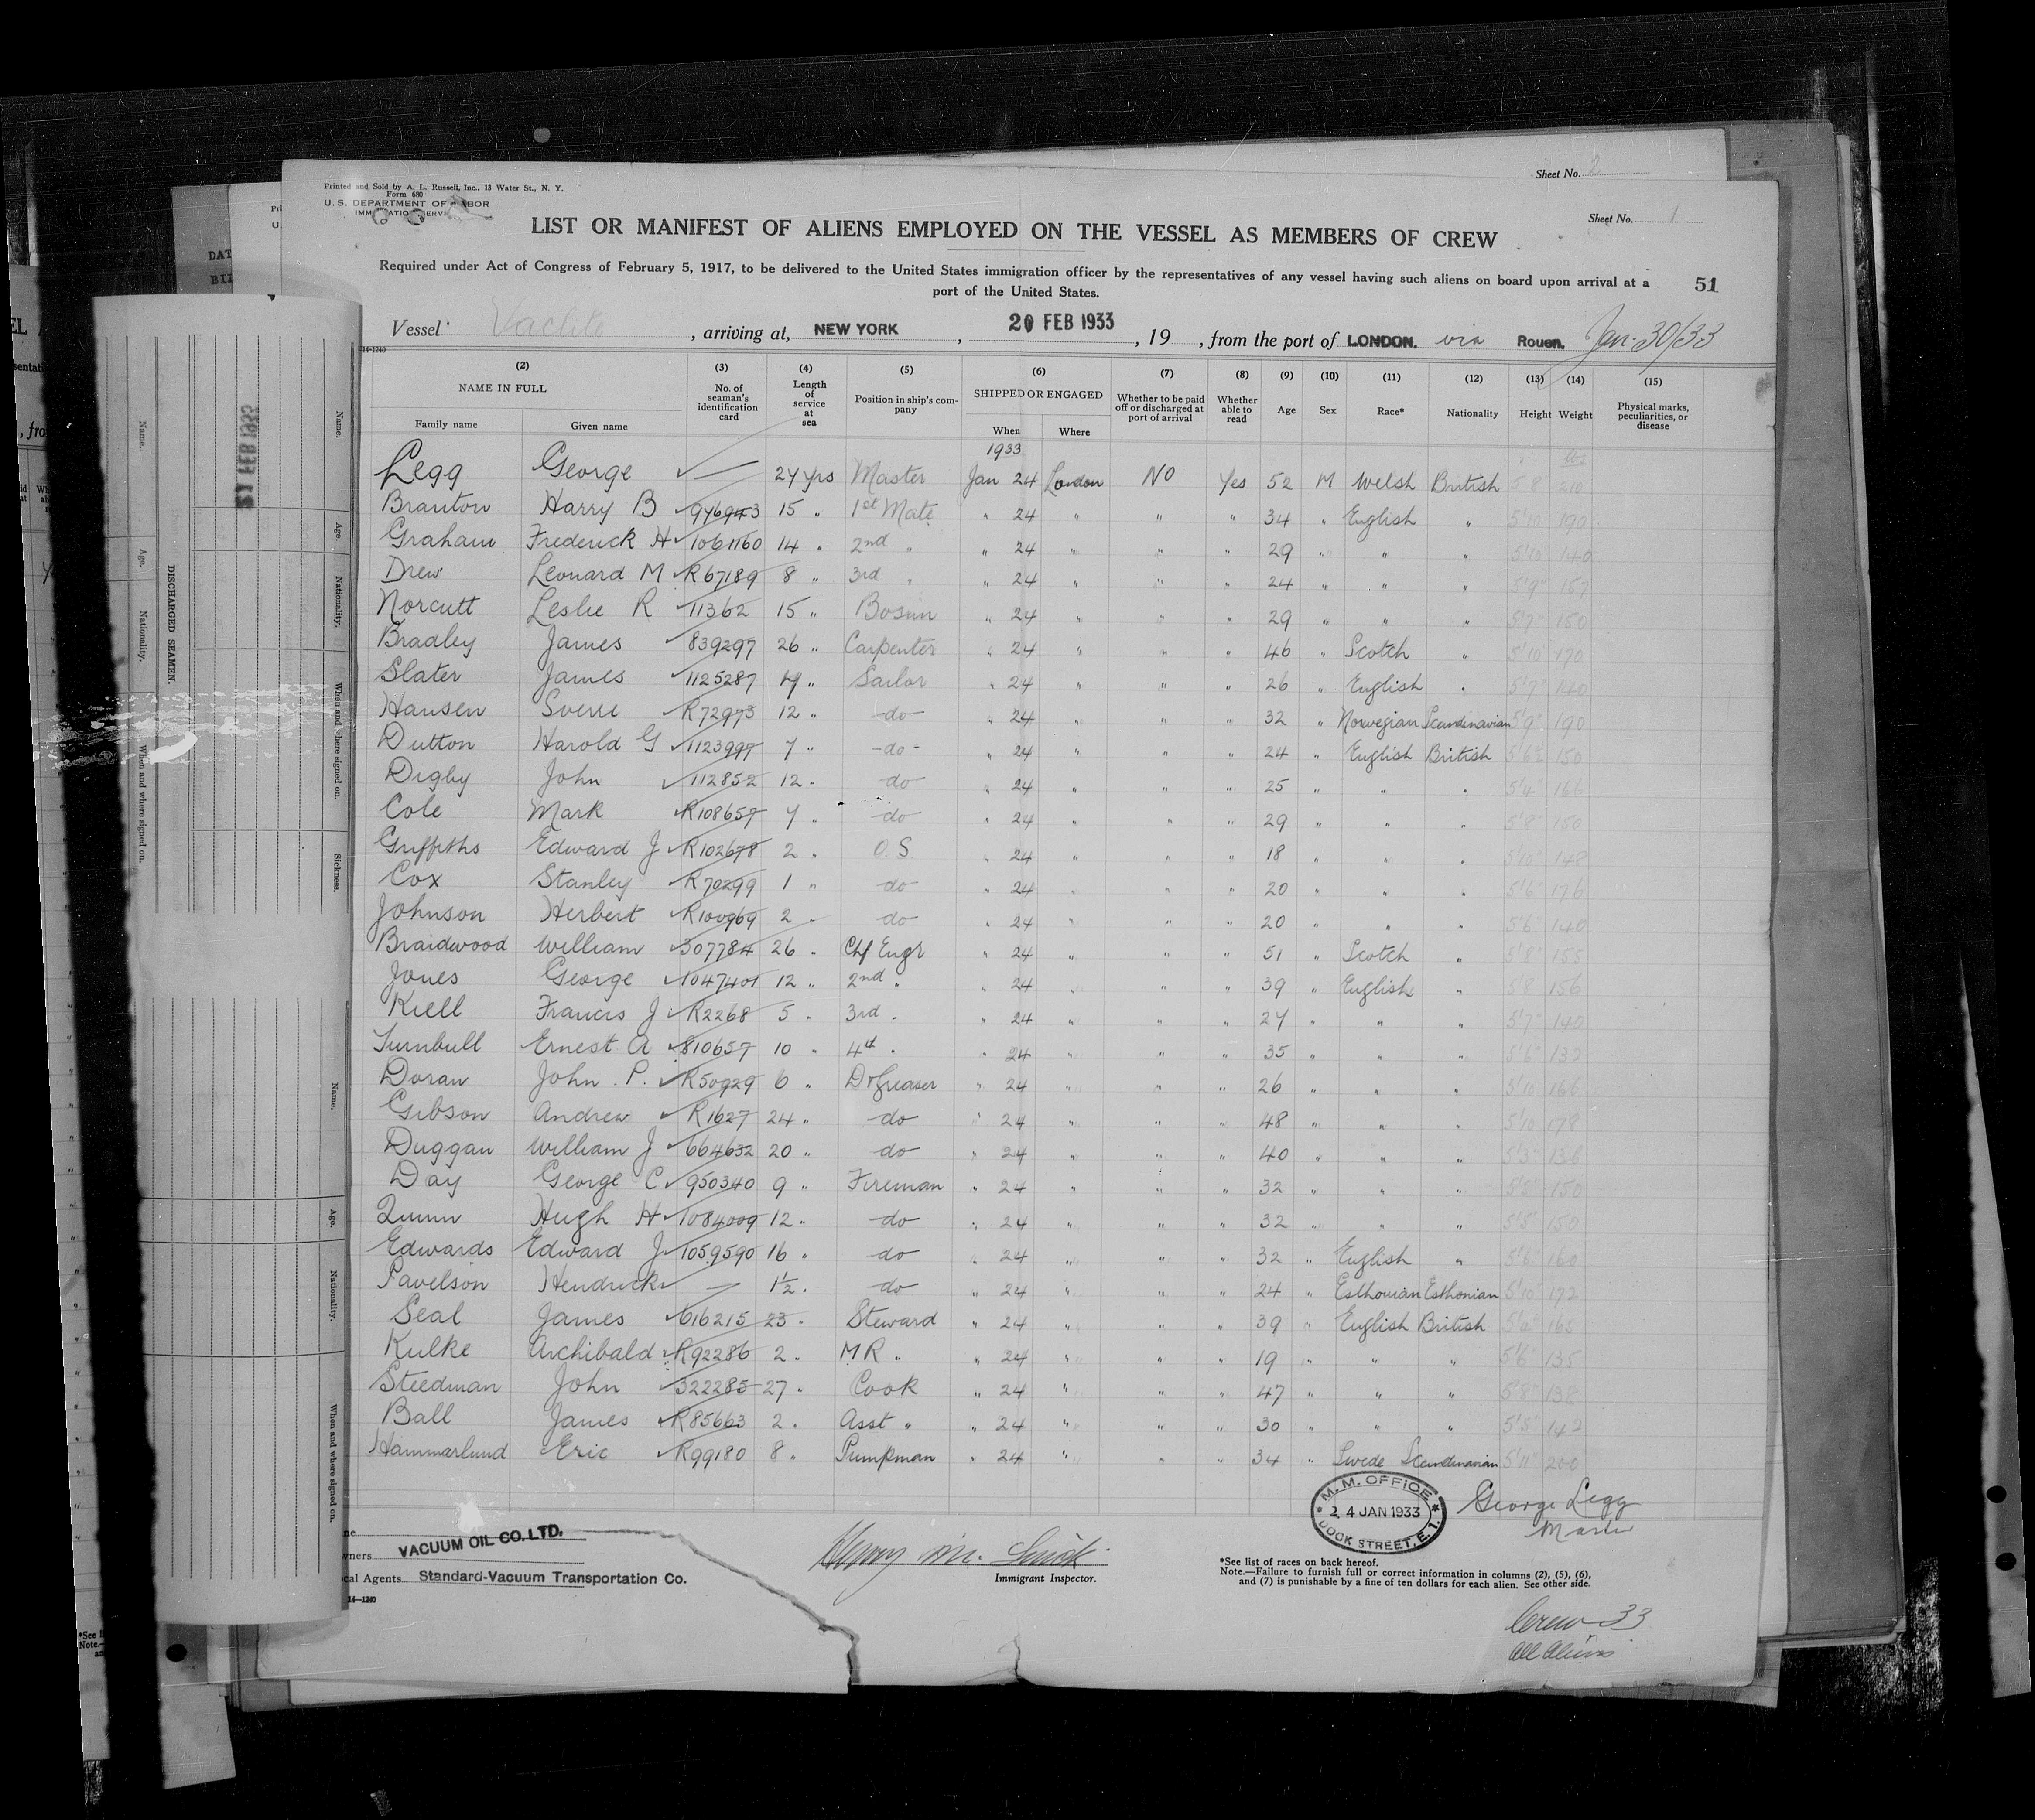 Sheet No. 2
Printed and Sold by A. L. Russell, Inc., 13 Water St., N. Y.
Form 680
U. S. DEPARTMENT OF LABOR
Sheet No. 1
LIST OR MANIFEST OF ALIENS EMPLOYED ON THE VESSEL AS MEMBERS OF CREW
Required under Act of Congress of February 5, 1917, to be delivered to the United States immigration officer by the representatives of any vessel having such aliens on board upon arrival at a
port of the United States.
51
Vessel Vaclite, arriving at, NEW YORK, 20 FEB 1933, 19 , from the port of LONDON. via Rouen. Jan. 30/33
14-1240
(2) (3) (4) (5) (6) (7) (8) (9) (10) (11) (12) (13) (14) (15)
NAME IN FULL No. of seaman's identification card Length of service at sea Position in ship's company SHIPPED OR ENGAGED Whether to be paid off or discharged at port of arrival Whether able to read Age Sex Race* Nationality Height Weight Physical marks, peculiarities, or disease
Family name Given name When Where
1933 lbs
Legg George — 24 yrs Master Jan 24 London No Yes 52 M Welsh British 5'8" 210
Branton Harry B 946943 15 " 1st Mate " 24 " " " 34 " English " 5'10 190
Graham Frederick H 1061160 14 " 2nd " " 24 " " " 29 " " " 5'10 140
Drew Leonard M R67189 8 " 3rd " " 24 " " " 24 " " " 5'9" 157
Norcutt Leslie R 11362 15 " Bosun " 24 " " " 29 " " " 5'7" 150
Bradley James 839297 26 " Carpenter " 24 " " " 46 " Scotch " 5'10 170
Slater James 1125287 Sailor " 24 " " " 26 " English " 5'7" 140
Hansen Sverre R72973 12 " -do- " 24 " " " 32 " Norwegian Scandinavian 5'9" 190
Dutton Harold G 1123997 7 " -do- " 24 " " " 24 " English British 5'6½ 150
Digby John 112852 12 " do " 24 " " " 25 " " " 5'4" 166
Cole Mark R108657 7 " do " 24 " " " 29 " " " 5'8" 150
Griffiths Edward J R102678 2 " O.S. " 24 " " " 18 " " " 5'10" 148
Cox Stanley R70299 1 " do " 24 " " " 20 " " " 5'6" 176
Johnson Herbert R100969 2 " do " 24 " " " 20 " " " 5'6" 140
Braidwood William 307784 26 " Chf Engr " 24 " " " 51 " Scotch " 5'8" 155
Jones George 1047401 12 " 2nd " " 24 " " " 39 " English " 5'8 156
Kiell Francis J R2268 5 " 3rd " " 24 " " " 27 " " " 5'7" 140
Turnbull Ernest A 810657 10 " 4th " " 24 " " " 35 " " " 5'6" 132
Doran John P. R50929 6 " D/Greaser " 24 " " " 26 " " " 5'10 166
Gibson Andrew R1627 24 " do " 24 " " " 48 " " " 5'10 178
Duggan William J 664632 20 " do " 24 " " " 40 " " " 5'3" 136
Day George C 950340 9 " Fireman " 24 " " " 32 " " " 5'5" 150
Quinn Hugh H 1084009 12 " do " 24 " " " 32 " " " 5'5" 150
Edwards Edward J 1059590 16 " do " 24 " " " 32 " English " 5'6" 160
Pavelson Hendrick — 1½ " do " 24 " " " 24 " Esthonian Esthonian 5'10" 172
Seal James 616215 23 " Steward " 24 " " " 39 " English British 5'6" 165
Kulke Archibald R92286 2 " M.R. " " 24 " " " 19 " " " 5'6" 135
Steedman John 322285 27 " Cook " 24 " " " 47 " " " 5'8" 138
Ball James R85663 2 " Asst " " 24 " " " 30 " " " 5'5" 142
Hammarlund Eric R99180 8 " Pumpman " 24 " " " 34 " Swede Scandinavian 5'11" 200
M. M. OFFICE
24 JAN 1933
DOCK STREET, E. 1.
George Legg
Master
VACUUM OIL CO. LTD.
Standard-Vacuum Transportation Co.
14-1240
Immigrant Inspector.
*See list of races on back hereof.
Note.—Failure to furnish full or correct information in columns (2), (5), (6),
and (7) is punishable by a fine of ten dollars for each alien. See other side.
Crew 33
All Aliens
DISCHARGED SEAMEN.
Name.
Age.
Nationality.
When and where signed on.
Sickness.
Name.
Age.
Nationality.
When and where signed on.